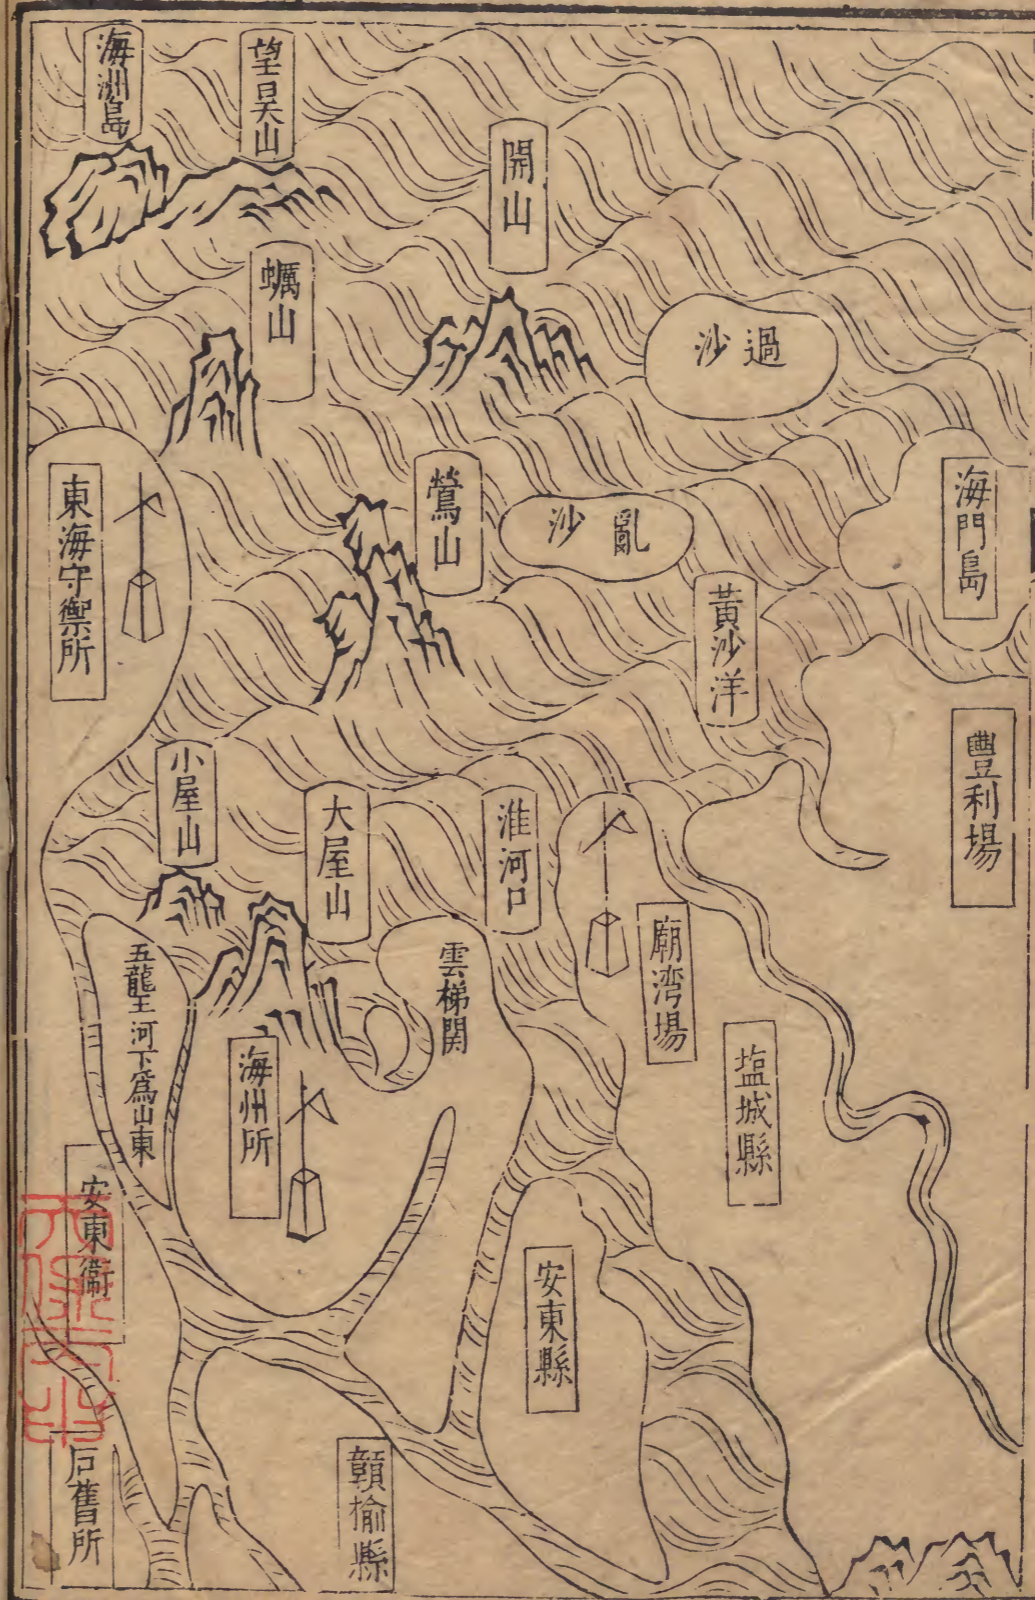 海洲島
望旲山
開山
蠣山
過沙
東海守禦所
鶯山
亂沙
海門島
黃沙洋
豊利場
小屋山
大屋山
淮河口
廟湾場
雲梯関
五龍王河下爲山東
海州所
塩城縣
安東衞
安東縣
石舊所
贛榆縣